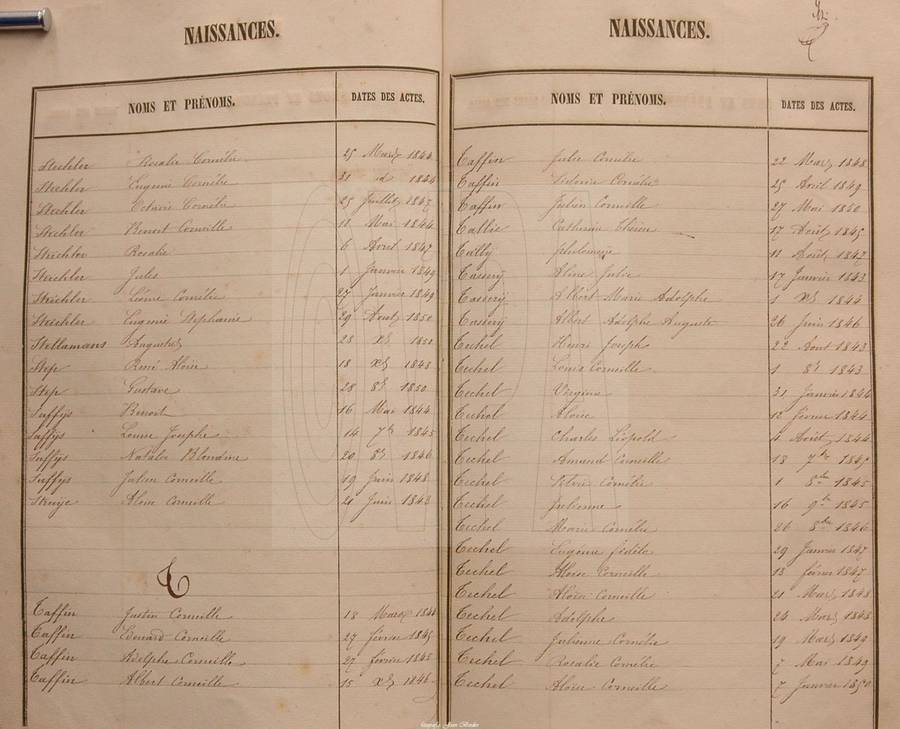 NAISSANCES.
NOMS ET PRÉNOMS. DATES DES ACTES.
Stechler Rosalie Cornélie 25 Mars 1844
Stechler Eugenie Cornélie 21 id 1844
Stechler Octavie Cornélie 25 Juillet 1847
Stechler Benoit Corneille 11 Mai 1844
Strichler Rosalie 6 Avril 1847
Strichler Jules 1 Janvier 1849
Strichler Léonie Cornélie 27 Janvier 1849
Strichler Eugenie Stephanie 29 Aout 1850
Stellamans Augustus 28 1850
Step René Aloïse 18 1843
Step Gustave 28 8bre 1850
Suffys Benoit 16 Mai 1844
Suffys Louise Josephe 14 7bre 1845
Suffys Natalie Blondine 20 8bre 1846
Suffys Julien Corneille 19 Juin 1848
Struye Aloïse Corneille 21 Juin 1843
T
Taffin Justin Corneille 18 Mars 1844
Taffin Edouard Corneille 27 février 1845
Taffin Adolphe Corneille 27 février 1845
Taffin Albert Corneille 15 1846
NAISSANCES.
NOMS ET PRÉNOMS. DATES DES ACTES.
Taffin Julie Cornélie 22 Mars 1848
Taffin Victorine Cornélie 25 Avril 1849
Taffin Julien Corneille 27 Mai 1850
Tallie Catherine Thérèse 17 Août 1845
Tally philomène 11 Août 1842
Tassery Aline Julie 17 Janvier 1843
Tassery Albert Marie Adolphe 1 1844
Tassery Albert Adolphe Auguste 26 Juin 1846
Techel Henri Joseph 22 Aout 1843
Techel Louis Corneille 1 8bre 1843
Techel Virginie 31 Janvier 1844
Techel Aloïse 12 février 1844
Techel Charles Léopold 4 Août 1844
Techel Amand Corneille 13 7bre 1845
Techel Silvie Cornélie 1 8bre 1845
Techel Julienne 16 9bre 1845
Techel Marie Cornélie 26 8bre 1846
Techel Eugénie fidèle 29 Janvier 1847
Techel Aloïse Corneille 13 février 1847
Techel Aloïse Corneille 21 Mars 1848
Techel Adolphe 24 Mars 1848
Techel Julienne Cornélie 19 Mars 1849
Techel Rosalie Cornélie 7 Mai 1849
Techel Aloïse Corneille 7 Janvier 1850